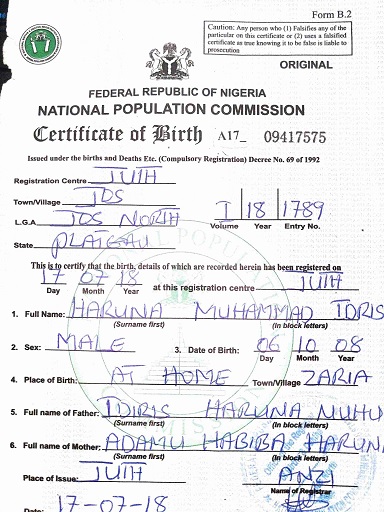 Form B.2
Caution: Any person who (1) Falsifies any of the
particular on this certificate or (2) uses a falsified
certificate as true knowing it to be false is liable to
prosecution
ORIGINAL
FEDERAL REPUBLIC OF NIGERIA
NATIONAL POPULATION COMMISSION
Certificate of Birth A17_ 09417575
Issued under the births and Deaths Etc. (Compulsory Registration) Decree No. 69 of 1992
Registration Centre JUTH
Town/Village JOS
L.G.A JOS NORTH
I 18 1789
Volume Year Entry No.
State PLATEAU
This is to certify that the birth, details of which are recorded herein has been registered on
17 07 18 at this registration centre JUTH
Day Month Year
1. Full Name: HARUNA MUHAMMAD IDRIS
(Surname first) (In block letters)
2. Sex: MALE 3. Date of Birth: 06 10 08
Day Month Year
4. Place of Birth: AT HOME Town/Village ZARIA
5. Full name of Father: IDIRIS HARUNA MUHU
(Surname first) (In block letters)
6. Full name of Mother: ADAMU HABIBA HARUN
(Surname first) (In block letters)
Place of Issue: JUTH ANZI
Name of Registrar
Date: 17-07-18